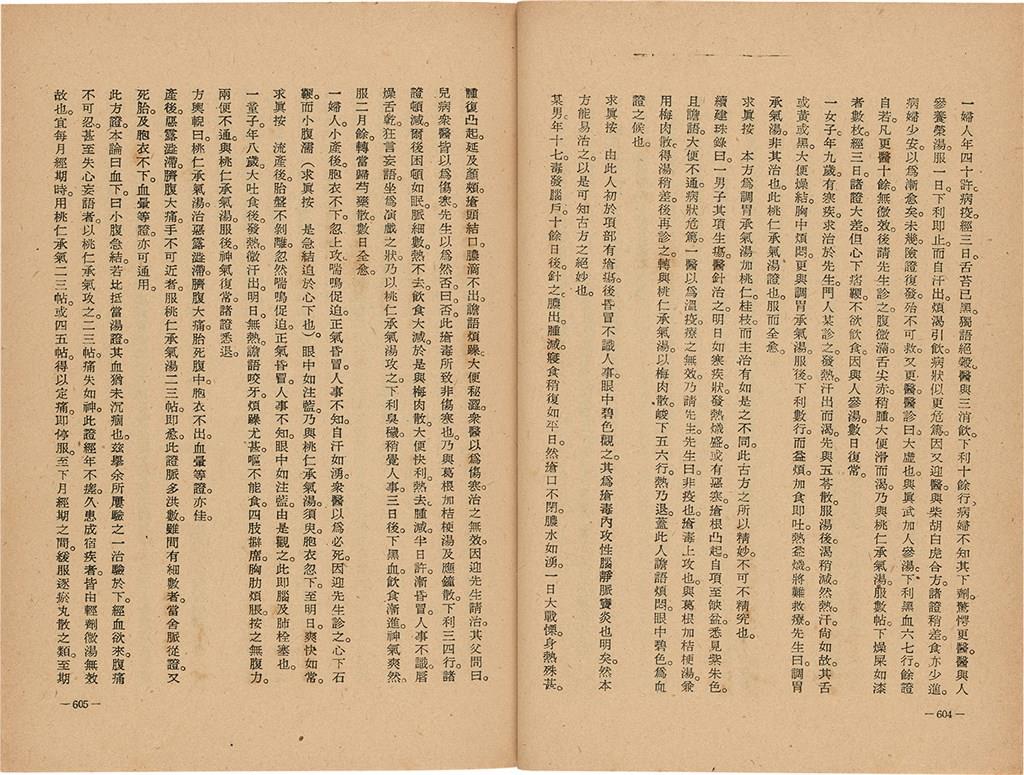 一婦人年四十許。病疫。經三日。舌苔已黑。獨語絕穀。醫與三消飲。下利十餘行。病婦不知其下劑。驚愕更醫。醫與人
參養榮湯。服一日。下利即止。而自汗出。煩渴引飲。病狀似更危篤。因又迎醫。與柴胡白虎合方。諸證稍差。食亦少進。
病婦少安。以爲漸愈矣。未幾險證復發。殆不可救。又更醫。醫診曰。大虛也。與眞武加人參湯。下利黑血六七行。餘證
自若。凡更醫十餘。無微效。後請先生診之。腹微滿。舌尖赤稍腫。大便滑而渴。乃與桃仁承氣湯。服數帖。下燥屎如漆
者數枚。經三日。諸證大差。但心下痞鞕。不欲飲食。因與人參湯。數日復常。
一女子年九歲。有寒疾。求治於先生。門人某診之。發熱汗出而渴。先與五苓散。服湯後。渴稍減。然熱汗尙如故。其舌
或黃或黑。大便燥結。胸中煩悶。更與調胃承氣湯。服後下利數行。而益煩。加食即吐。熱益熾。將難救療。先生曰。調胃
承氣湯非其治也。此桃仁承氣湯證也。服而全愈。
求眞按　本方爲調胃承氣湯加桃仁桂枝。而主治有如是之不同。此古方之所以精妙。不可不精究也。
續建珠錄曰。一男子其項生瘍。醫針治之。明日如寒疾狀。發熱熾盛。或有惡寒。瘡根凸起。自項至缺盆悉見紫朱色。
且譫語。大便不通。病狀危篤。一醫以爲溫疫。療之無效。乃請先生。先生曰。非疫也。瘡毒上攻也。與葛根加桔梗湯。兼
用梅肉散。得湯稍差。後再診之。轉與桃仁承氣湯。以梅肉散峻下五六行。熱乃退。蓋此人譫語煩悶。眼中碧色。爲血
證之候也。
求眞按　由此人初於項部有瘡瘍。後昏冒不識人事。眼中碧色觀之。其爲瘡毒內攻性腦靜脈竇炎也明矣。然本
方能易治之。以是可知古方之絕妙也。
某男年十七。毒發腦戶。十餘日後。針之膿出。腫減。寢食稍復如平日。然瘡口不閉。膿水如湧。一日大戰慄。身熱殊甚。
— 604 —
腫復凸起。延及顏頰。瘡頭結口。膿滴不出。譫語煩躁。大便秘澀。衆醫以爲傷寒。治之無效。因迎先生請治。其父問曰。
兒病衆醫皆以爲傷寒。先生以爲然否。曰。否。此瘡毒所致。非傷寒也。乃與葛根加桔梗湯及應鐘散。下利三四行。諸
證頓減。爾後困頓如眠。脈細數。熱不去。飲食大減。於是與梅肉散。大便快利。熱去。腫減。半日許。漸昏冒。人事不識。唇
燥舌乾。狂言妄語。坐爲演戲之狀。乃以桃仁承氣湯攻之。下利臭穢。稍覺人事。三日後。下黑血。飲食漸進。神氣爽然。
服二月餘。轉當歸芍藥散。數日全愈。
一婦人小產後。胞衣不下。忽上攻喘鳴促迫。正氣昏冒。人事不知。自汗如湧。衆醫以爲必死。因迎先生診之。心下石
鞕。而小腹濡（求眞按　是急結迫於心下也）。眼中如注藍。乃與桃仁承氣湯。須臾胞衣忽下。至明日爽快如常。
求眞按　流產後胎盤不剝離。忽然喘鳴促迫。正氣昏冒。人事不知。眼中如注藍。由是觀之。此即腦及肺栓塞也。
一童子年八歲。大吐食後。發熱微汗出。明日無熱。譫語咬牙。煩躁尤甚。嘔不能食。四肢擗席。胸肋煩脹。按之無腹力。
兩便不通。與桃仁承氣湯。服後。神氣復常。諸證悉退。
方輿輗曰。桃仁承氣湯。治惡露澁滯。臍腹大痛。胎死腹中。胞衣不出。血暈等證。亦佳。
產後惡露澁滯。臍腹大痛。手不可近者。服桃仁承氣湯二三帖即愈。此證脈多洪數。雖間有細數者。當舍脈從證。又
死胎及胞衣不下。血暈等證。亦可通用。
此方證。本論曰血下。曰小腹急結。若比抵當湯證。其血猶未沉痼也。茲舉余所屢驗之一治驗於下。經血欲來。腹痛
不可忍。甚至失心妄語者。以桃仁承氣攻之。二三帖。痛失如神。此證經年不瘥。久患成宿疾者。皆由輕劑微湯無效
故也。宜每月經期時。用桃仁承氣二三帖。或四五帖。得以定痛。即停服。至下月經期之間。緩服逐瘀丸散之類。至期
— 605 —